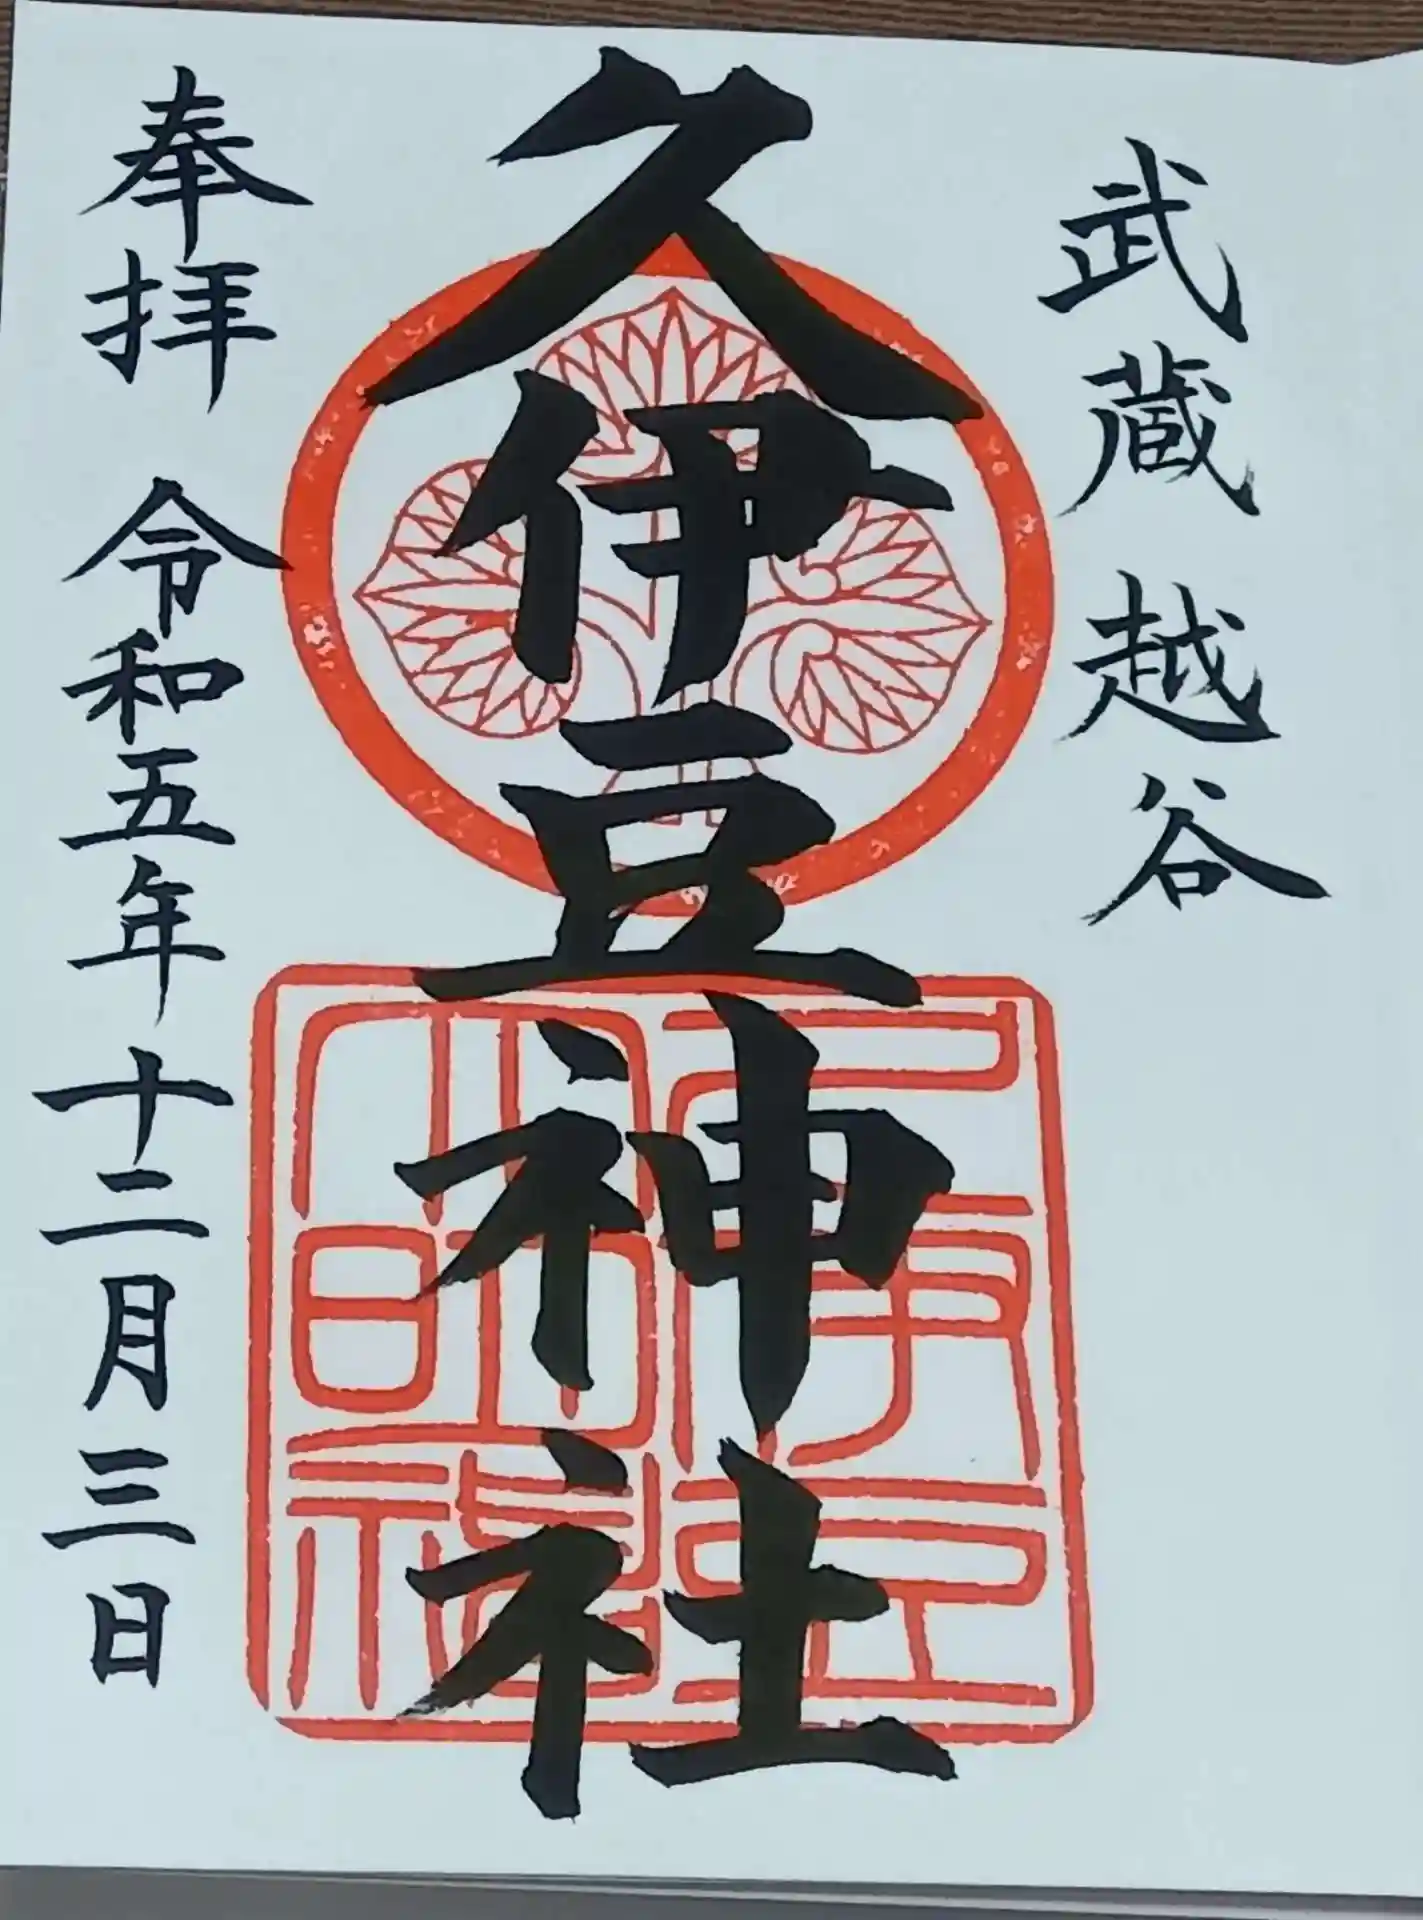 武蔵 越谷
久伊豆神社
奉拝 令和五年 十二月三日